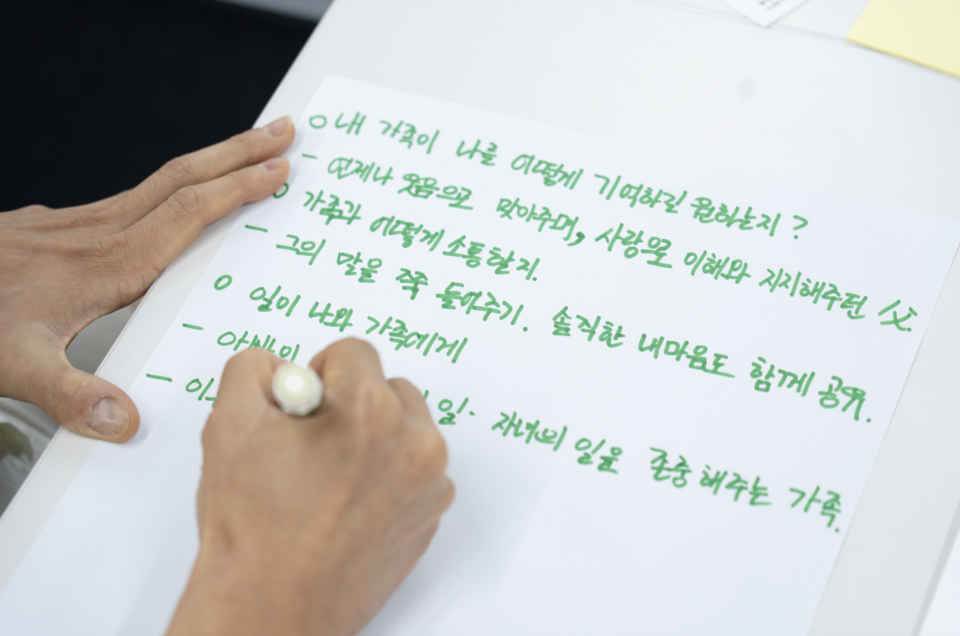 ○ 내 가족이 나를 어떻게 기억하길 원하는지?
- 언제나 웃음으로 맞아주며, 사랑으로 이해와 지지해주던 父.
○ 가족과 어떻게 소통할지.
- 그의 말을 쭉 들어주기. 솔직한 내마음도 함께 공유.
○ 일이 나와 가족에게
-
- 일. 자녀의 일을 존중해주는 가족.